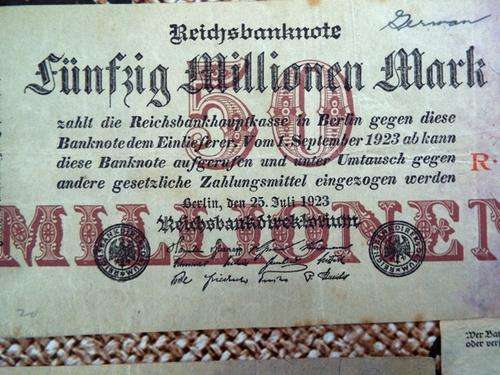 German
Reichsbanknote
Fünfzig Millionen Mark
50
zahlt die Reichsbankhauptkasse in Berlin gegen diese
Banknote dem Einlieferer. Vom 1. September 1923 ab kann
diese Banknote aufgerufen und unter Umtausch gegen
andere gesetzliche Zahlungsmittel eingezogen werden
R·
Berlin, den 25. Juli 1923
Reichsbankdirektorium
MILLIONEN
20
Wer Ban
oder ver